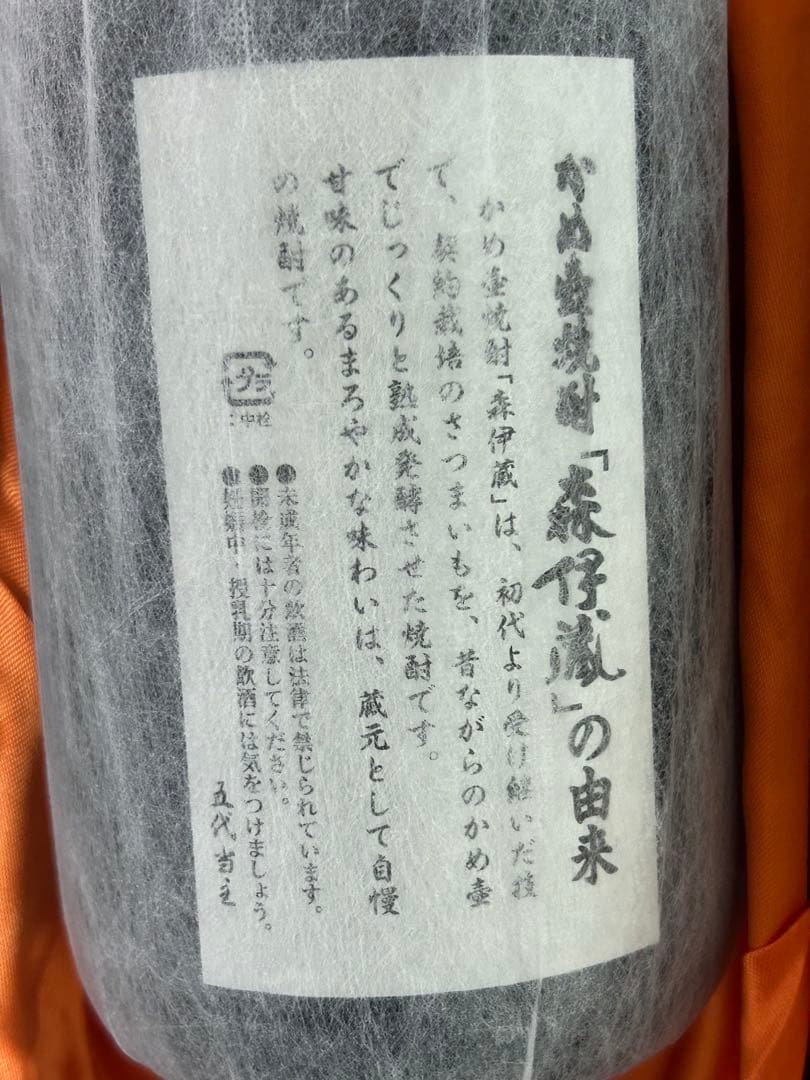 かめ壺焼酎「森伊蔵」の由来
かめ壺焼酎「森伊蔵」は、初代より受け継いだ技
で、契約栽培のさつまいもを、昔ながらのかめ壺
でじっくりと熟成発酵させた焼酎です。
甘味のあるまろやかな味わいは、蔵元として自慢
の焼酎です。
プラ
:中栓
●未成年者の飲酒は法律で禁じられています。
●開栓には十分注意してください。
●妊娠中、授乳期の飲酒には気をつけましょう。
五代当主